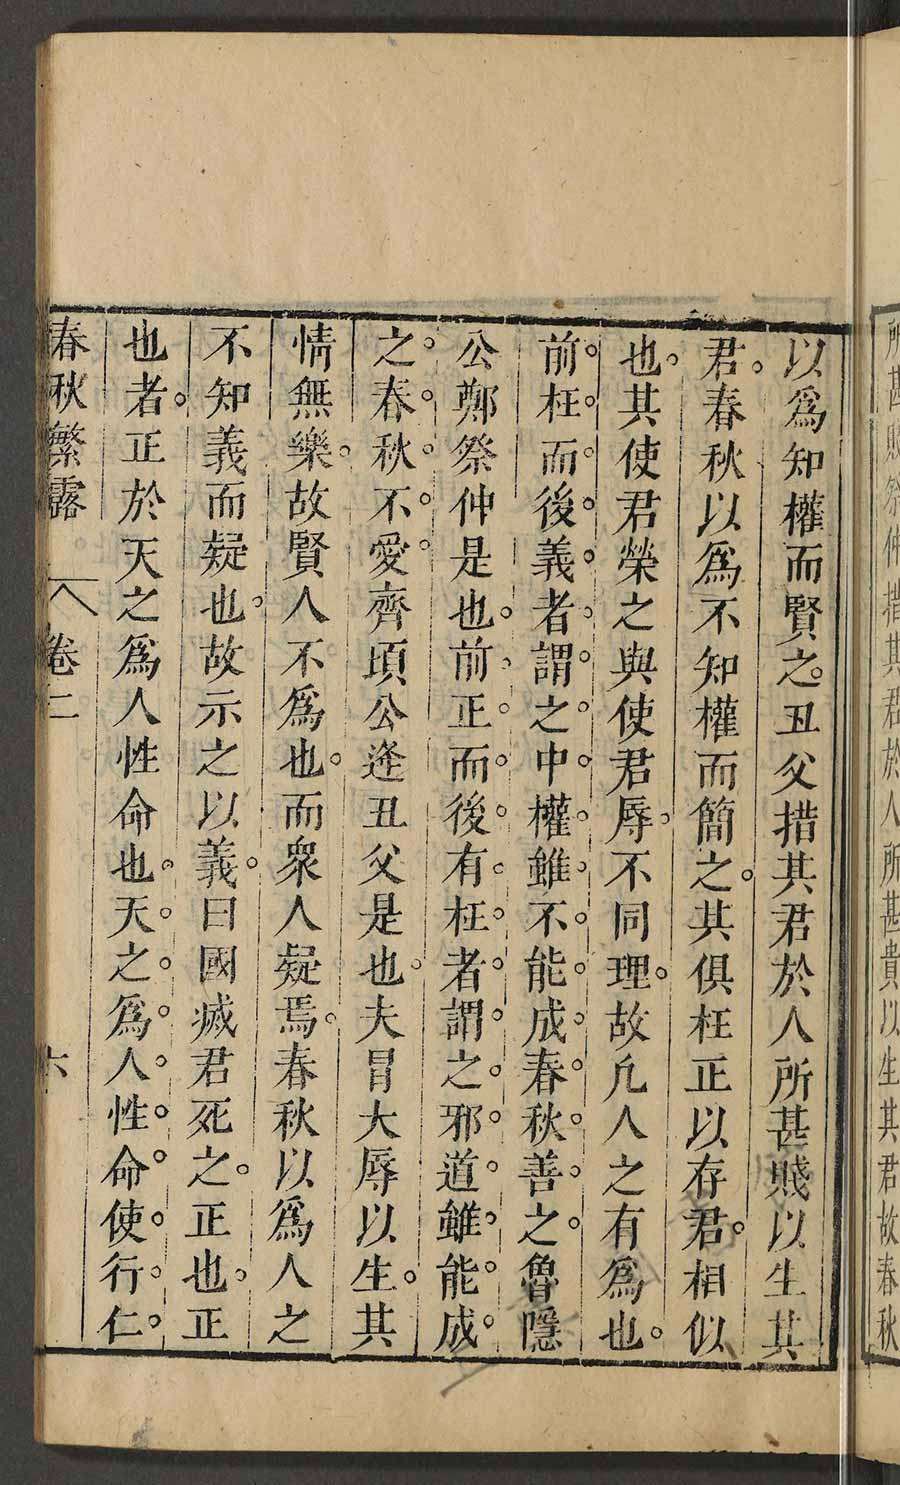 所甚賤祭仲措其君於人所甚貴以生其君故春秋
以爲知權而賢之。丑父措其君於人所甚賤以生其
君。春秋以爲不知權而簡之。其俱枉正以存君。相似
也。其使君榮之與使君辱。不同理。故凡人之有爲也。
前枉而後義者謂之中權雖不能成春秋善之。魯隱
公鄭祭仲是也。前正而後有枉者謂之邪道雖能成
之春秋不愛。齊頃公逢丑父是也。夫冒大辱以生。其
情無樂。故賢人不爲也。而衆人疑焉。春秋以爲人之
不知義而疑也。故示之以義。曰國滅君死之。正也。正
也者。正於天之爲人性命也。天之爲人性命使行仁
春秋繁露 卷二 六